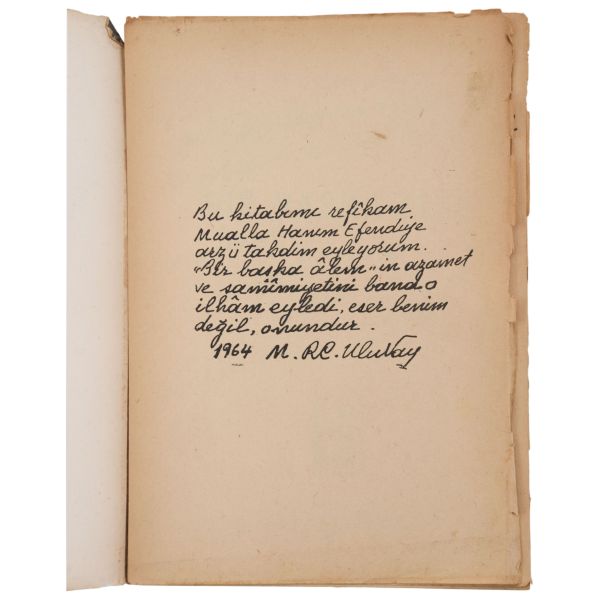 Bu kitabımı refîkam
Mualla Hanım Efendiye
arz ü takdim eyleyorum.
"Bir başka âlem" in azamet
ve samîmiyetini bana o
ilhâm eyledi, eser benim
değil, onundur.
1964 M. R.C. Ulunay